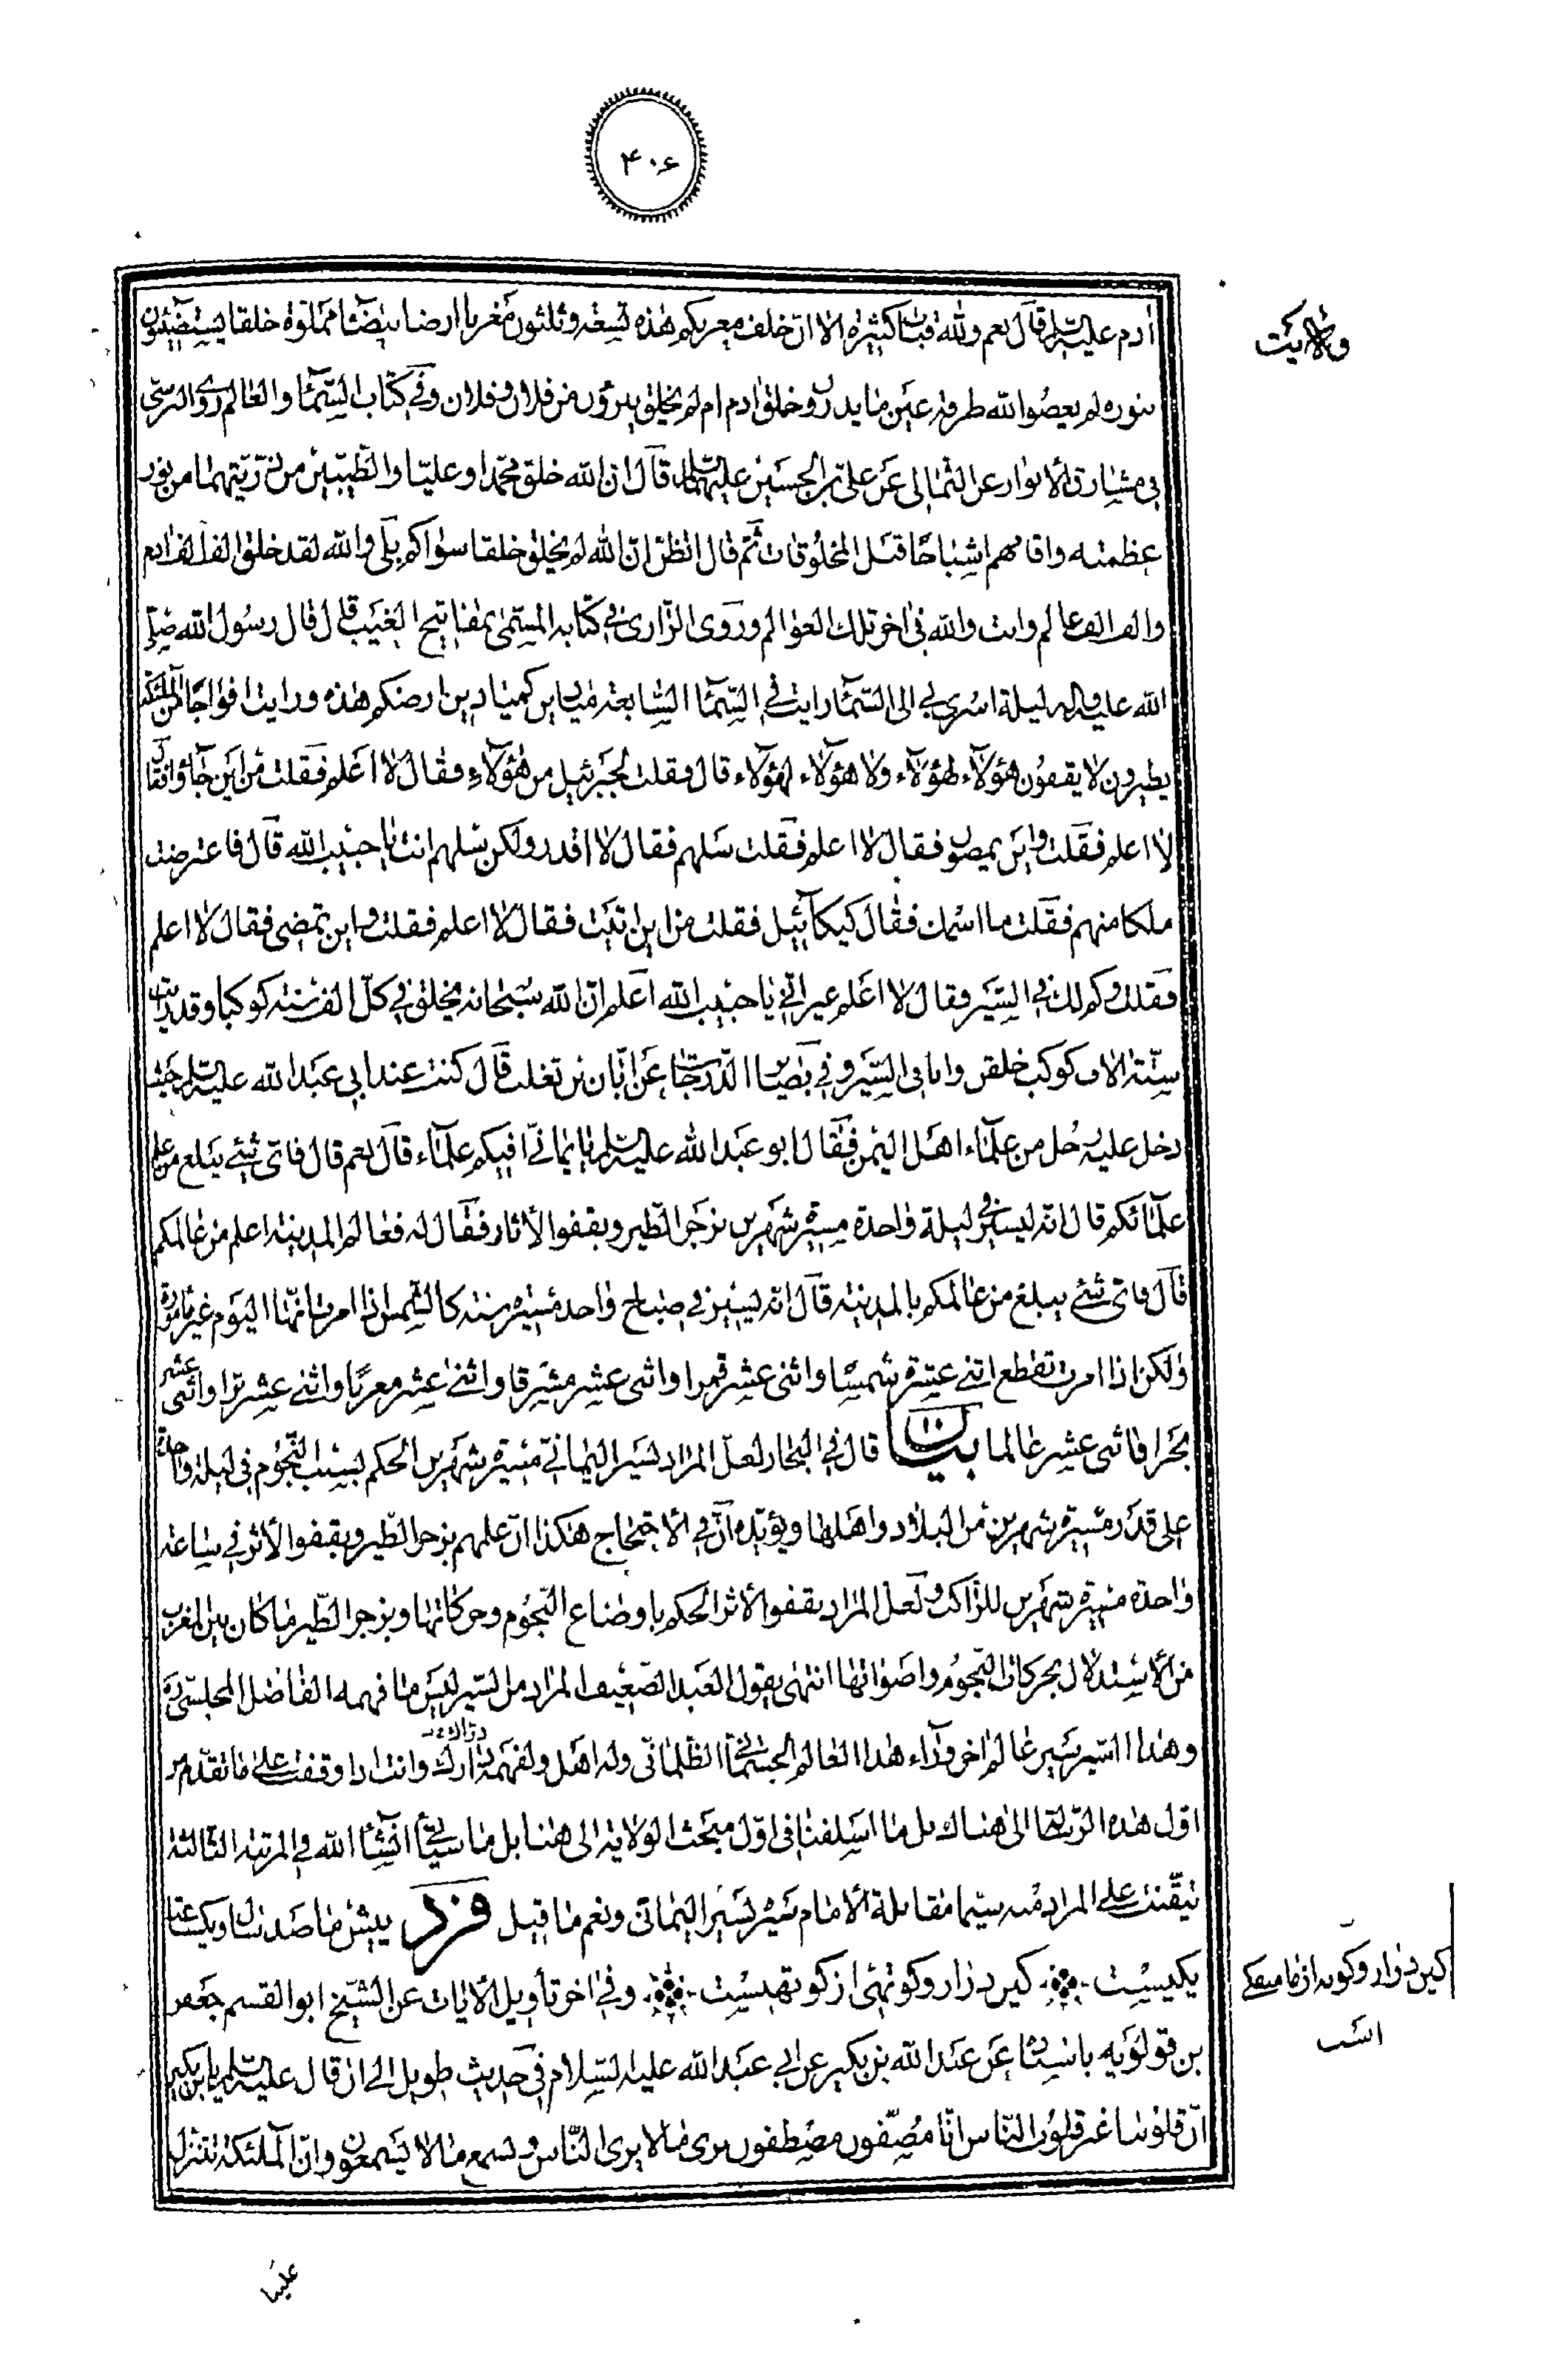 ۴۰۶
ولایت
ادم علیه السلم قال نعم ولله قباب کثیرة الا ان خلف مغربکم هذه تسعة وثلثون مغربا ارضا بیضاء مملوة خلقا یستضیئون
بنوره لم یعصوا الله طرفة عین ما یدرون خلق ادم ام لم یخلق یبرؤن من فلان وفلان وفی کتاب السماء والعالم روی البرسی
فی مشارق الانوار عن الثمالی عن علی بن الحسین علیهما السلم قال ان الله خلق محمدا وعلیا والطیبین من ذریتهما من نور
عظمته واقامهم اشباحا قبل المخلوقات ثم قال اتظن ان الله لم یخلق خلقا سواکم بلی والله لقد خلق الله الف الف ادم
والف الف عالم وانت والله فی اخر تلک العوالم وروی الرازی فی کتابه المسمی بمفاتیح الغیب قال قال رسول الله صلی
الله علیه واله لیلة اسری بی الی السماء رایت فی السماء السابعة میادین کمیادین ارضکم هذه ورایت افواجا من الملئکة
یطیرون لا یقفون هؤلاء لهؤلاء ولا هؤلاء لهؤلاء قال فقلت لجبرئیل من هؤلاء فقال لا اعلم فقلت من این جاؤا فقال
لا اعلم فقلت واین یمضون فقال لا اعلم فقلت سلهم فقال لا اقدر ولکن سلهم انت یا حبیب الله قال فاعترضت
ملکا منهم فقلت ما اسمک فقال کیکائیل فقلت من این اتیت فقال لا اعلم فقلت واین تمضی فقال لا اعلم
فقلت وکم لک فی السیر فقال لا اعلم غیر انی یا حبیب الله اعلم ان الله سبحانه یخلق فی کل الف سنة کوکبا وقد رایت
ستة الاف کوکب خلقن وانا فی السیر وفی بصایر الدرجات عن ابان بن تغلب قال کنت عند ابی عبد الله علیه السلم حیث
دخل علیه رجل من علماء اهل الیمن فقال ابو عبد الله علیه السلم یا یمانی افیکم علماء قال نعم قال فای شیئ یبلغ من علم
علمائکم قال انه لیسیر فی لیلة واحدة مسیرة شهرین یزجر الطیر ویقفوا الاثار فقال له فعالم المدینة اعلم من عالمکم
قال فای شیئ یبلغ من عالمکم بالمدینة قال انه لیسیر فی صباح واحد مسیرة سنة کالشمس اذا امرت انها الیوم غیر مامورة
ولکن اذا امرت تقطع اثنی عشرة شمسا واثنی عشر قمرا واثنی عشر مشرقا واثنی عشر مغربا واثنی عشر برا واثنی عشر
بحرا واثنی عشر عالما بیان قال فی البحار لعل المراد لسیر الیمانی مسیرة شهرین الحکم بسبب النجوم فی لیلة واحدة
علی قدر مسیرة شهرین من البلاد واهلها ویؤیده ان فی الاحتجاج هکذا ان علمهم یزجر الطیر ویقفوا الاثر فی ساعة
واحدة مسیرة شهرین للراکب ولعل المراد بقفو الاثر الحکم باوضاع النجوم وحرکاتها وبزجر الطیر ما کان بین العرب
من الاستدلال بحرکات النجوم واصواتها انتهی یقول العبد الضعیف المراد من السیر لیس ما فهمه الفاضل المجلسی ره
وهذا السیر سیر عالم اخر وراء هذا العالم الجسمانی الظلمانی وله اهل ولفهمه وانت اذا وقفت علی ما تقدم من
اول هذه الرسالة الی هناک بل ما اسلفنا فی اول مبحث الولایة الی هنا بل ما سیأتی انشاء الله فی المرتبة الثالثة
تیقنت علی المراد منه سیما مقابلة الامام سیره لسیر الیمانی ونعم ما قیل فرد پیش ما صد سال ویکساعت
یکیست کین دراز وکوتهی از کوتهیست وفی اخر تأویل الایات عن الشیخ ابو القسم جعفر
بن قولویه باسناده عن عبد الله بن بکیر عن ابی عبد الله علیه السلام فی حدیث طویل الی ان قال علیه السلم یا ابن بکیر
ان قلوبنا غیر قلوب الناس انا مصفون مصطفون نری ما لا یری الناس ونسمع ما لا یسمعون وان الملئکة تتنزل
کین دراز وکوته از ما
است
علینا